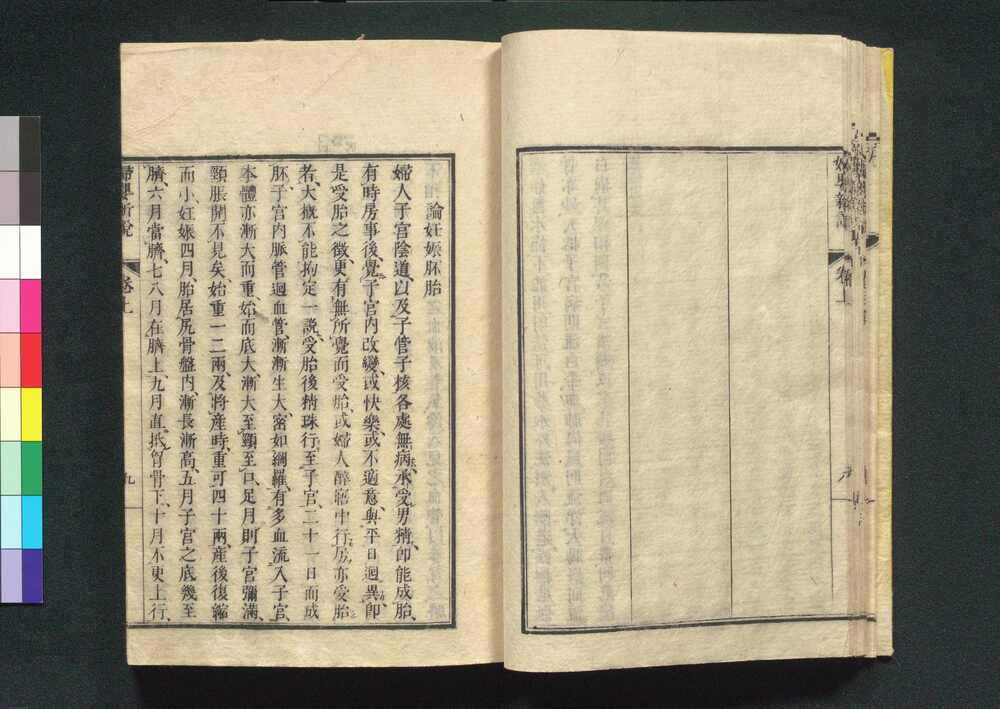 論妊娠胚胎
婦人子宮陰道、以及子管子核各處無病、承受男精、即能成胎、
有時房事後、覺子宮内改變、或快樂、或不適意、與平日迥異、即
是受胎之徴、更有無所覺而受胎、或婦人醉寤中行房、亦受胎
若、大概不能拘定一説、受胎後精珠行至子宮、二十一日而成
胚、子宮内脈管迴血管、漸漸生大、密如綱羅、有多血流入子宮、
本體亦漸大而重、始而底大、漸大至頸至口、足月則子宮彌滿、
頸脹開不見矣、始重一二兩、及將産時、重可四十兩、産後復縮
而小、妊娠四月胎居尻骨盤内、漸長漸高、五月子宮之底幾至
臍、六月當臍、七八月在臍上、九月直抵胷骨下、十月不更上行、
婦嬰新説
卷上
九